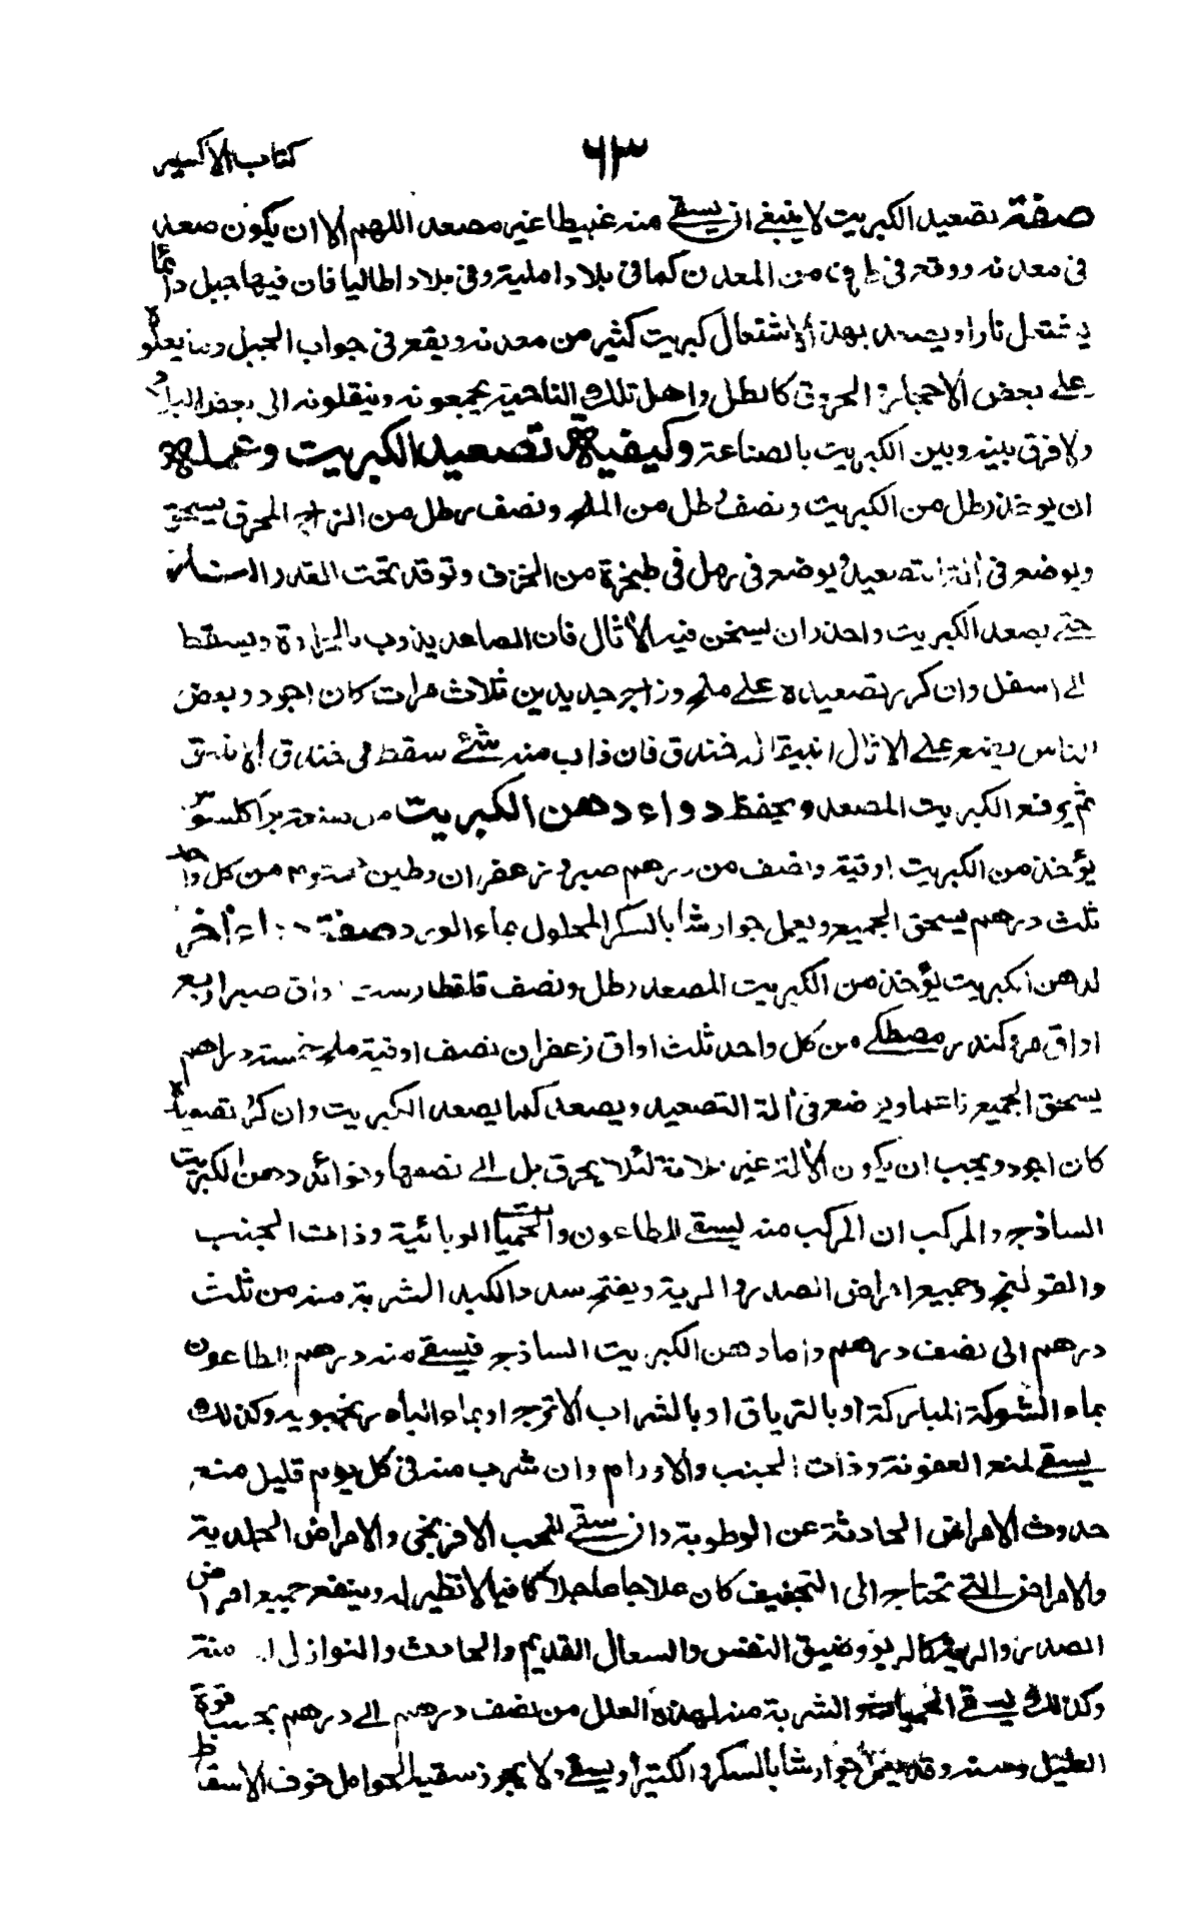 كتاب الاكسير
٦٣
صفة تصعيد الكبريت لا ينبغي ان يسقى منه غبيطا غير مصعد اللهم الا ان يكون صعد
في معدنه ووقع في من المعدن كما في بلاد املية وفي بلاد اطاليا فان فيها جبل دائما
يشتعل نارا ويصعد بهذا الاشتعال كبريت كثير من معدنه ويقع في جواب الجبل ومنا يعلوه
على بعض الاحجار المحروق كالطل واهل تلك الناحية يجمعونه وينقلونه الى بعض البلاد
ولا فرق بينه وبين الكبريت بالصناعة وكيفية تصعيد الكبريت وعمله
ان يوخذ رطل من الكبريت ونصف رطل من الملح ونصف رطل من الزاج المحرق يسحق
ويوضع في آلة التصعيد ويوضع في رمل في طبخرة من الخزف وتوقد تحت القدر
حتى يصعد الكبريت واحذر ان يسخن فيه الاثال فان الصاعد يذوب بالحرارة ويسقط
الى اسفل وان كرر تصعيده على ملح وزاج جديدين ثلاث مرات كان اجود وبعض
الناس يضع على الاثال انبيقا له خندق فان ذاب منه شئ سقط في خندق الانبيق
ثم يرفع الكبريت المصعد ويحفظ دواء دهن الكبريت من صنعة براكلسوس
يؤخذ من الكبريت اوقية ونصف من درهم صبر ومر زعفران وطين مختوم من كل واحد
ثلث درهم يسحق الجميع ويعمل جوارشا بالسكر المحلول بماء الورد صفة دواء آخر
لدهن الكبريت يؤخذ من الكبريت المصعد رطل ونصف قلقطار ست اواق صبر اربع
اواق مر وكندر مصطكى من كل واحد ثلث اواق زعفران نصف اوقية ملح خمسة دراهم
يسحق الجميع ناعما ويوضع في آلة التصعيد ويصعد كما يصعد الكبريت وان كرر تصعيده
كان اجود ويجب ان يكون الآلة غير ملانة لئلا يحرق بل الى نصفها وفوائد دهن الكبريت
الساذج والمركب ان المركب منه يسقى للطاعون والحميات الوبائية وذات الجنب
والقولنج وجميع امراض الصدر والرية ويفتح سدد الكبد الشربة منه من ثلث
درهم الى نصف درهم واما دهن الكبريت الساذج فيسقى منه درهم للطاعون
بماء الشوكة المباركة او بالترياق او بالشراب الاترج او بماء الباذرنجبويه وكذلك
يسقى لمنع العفونة وذات الجنب والاورام وان شرب منه في كل يوم قليل منع
حدوث الامراض الحادثة عن الرطوبة وان سقى للحب الافرنجي والامراض الجلدية
والامراض التي تحتاج الى التجفيف كان علاجا عاجلا كافيا لا نظير له وينفع جميع امراض
الصدر والرية كالربو وضيق النفس والسعال القديم والحادث والنوازل
وكذلك يسقى الحميات والشربة منه لهذه العلل من نصف درهم الى درهم بحسب قوة
العليل وسنه وقد يعمل جوارشا بالسكر والكثيرا ويسقى ولا يجوز سقيه الحوامل خوف الاسقاط